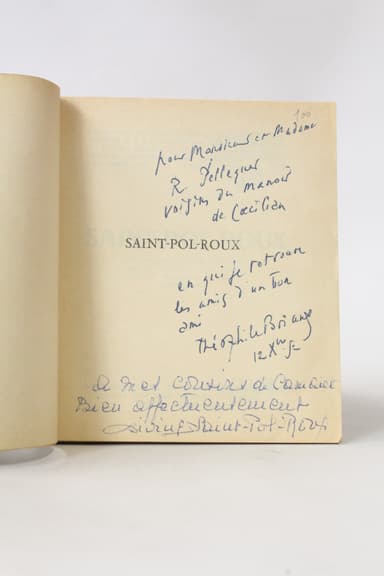 100
pour Monsieur et Madame
R. Pelleguer
voisins du manoir
de Cœcilian
SAINT-POL-ROUX
en qui je retrouve
les amis d'un bon
ami
Théophile Briant
12 Xbre 52
A mes cousins de Camaret
Bien affectueusement
Divine Saint-Pol-Roux